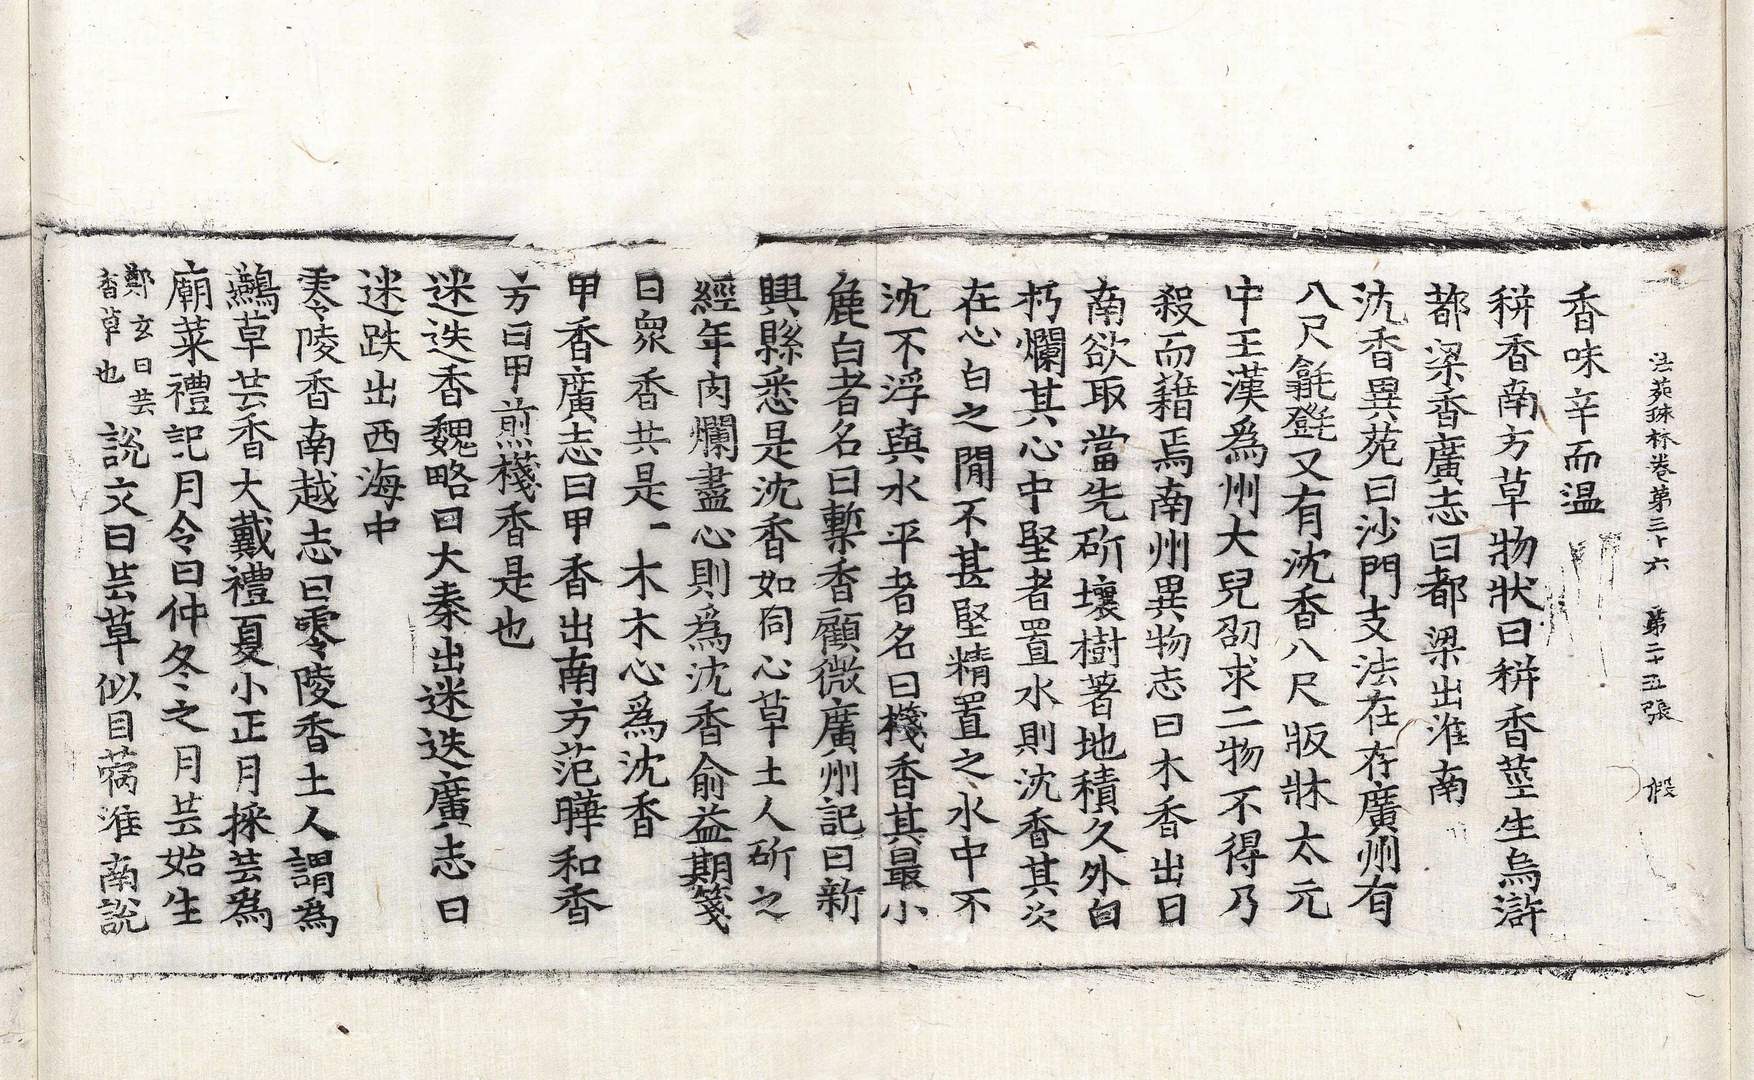 法苑珠林卷第三十六 第二十五張 假
香味辛而温
𥞩香南方草物狀曰𥞩香莖生烏滸
都梁香廣志曰都梁出淮南
沈香異苑曰沙門支法在存廣州有
八尺㲪㲪又有沈香八尺版牀太元
中王漢爲州大兒劭求二物不得乃
殺而籍焉南州異物志曰木香出日
南欲取當先斫壞樹著地積久外白
朽爛其心中堅者置水則沈香其次
在心白之閒不甚堅精置之水中不
沈不浮與水平者名曰棧香其最小
麁白者名曰槧香顧微廣州記曰新
興縣悉是沈香如同心草土人斫之
經年肉爛盡心則爲沈香俞益期箋
曰衆香共是一木木心爲沈香
甲香廣志曰甲香出南方范曄和香
方曰甲煎棧香是也
迷迭香魏略曰大秦出迷迭廣志曰
迷跌出西海中
零陵香南越志曰零陵香土人謂爲
鷰草芸香大戴禮夏小正月採芸爲
廟菜禮記月令曰仲冬之月芸始生
鄭玄曰芸
香草也
說文曰芸草似目蓿淮南說